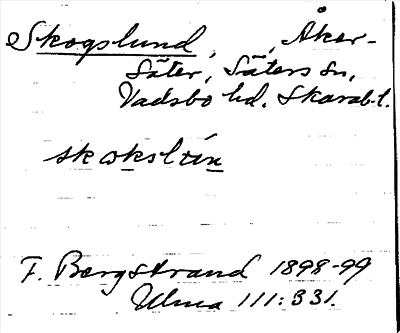 Skogslund, , Åker-
Säter, Säters sn,
Vadsbo hd. Skarab.l.
skoksl
F. Bergstrand 1898-99
Ulma 111:331.